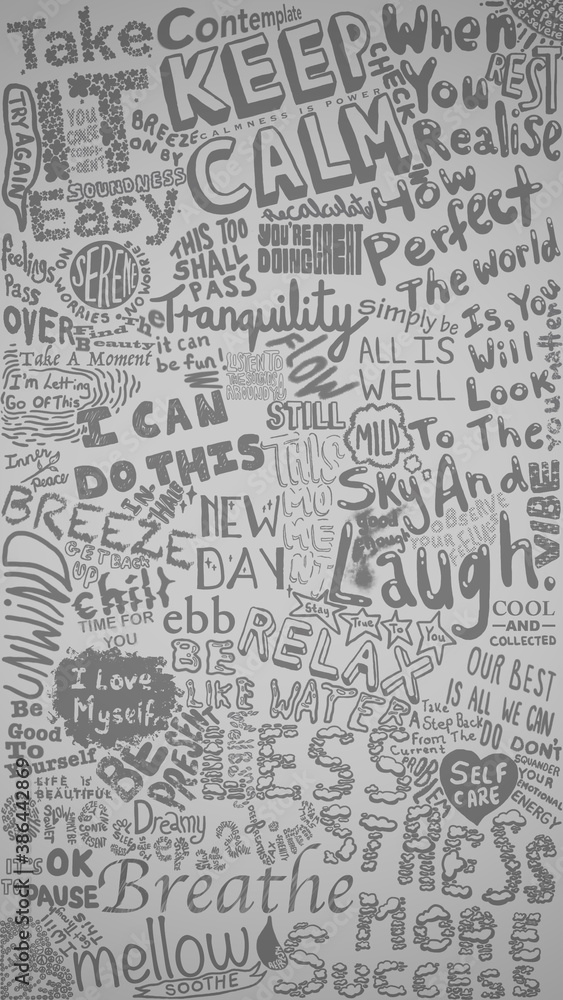 Take
IT
Easy
Contemplate
KEEP
CALMNESS IS POWER
CALM
CHECK
IN
When
You
Realise
How
Perfect
The World
Is, You
Will
Look
To The
Sky And
Laugh.
REST
TRY AGAIN
BREEZE
ON BY
SOUNDNESS
feelings
Pass
OVER
SERENE
NO WORRIES
NO WORRIE
THIS TOO
SHALL
PASS
recalculate
YOU'RE
DOING GREAT
Find The
Beauty
Tranquility
simply be
Take A Moment
it can
be fun!
LISTEN TO
THE SOUNDS
AROUND YOU
FLOW
ALL IS
WELL
you matter
I'm Letting
Go Of This
I CAN
DO THIS
STILL
MILD
THIS
MO
ME
NT
Inner
Peace
IN-
HALE
BREEZE
NEW
DAY
good
laugh
OBSERVE
YOUR
FEELINGS
VIBE
GET BACK
UP
UNWIND
chill
TIME FOR
YOU
ebb
Stay
True
To
You
COOL
—AND—
COLLECTED
BE
RELAX
LIKE WATER
I Love
Myself
OUR BEST
IS ALL WE CAN
DO
Be
Good
To
Yourself
BE
PRESENT
LESS
STRESS
Take
A Step Back
From The
Current
PROBLEM
SELF
CARE
DON'T
SQUANDER
YOUR
EMOTIONAL
ENERGY
LIFE IS
BEAUTIFUL
Dreamy
relax
IT'S OK
TO PAUSE
Breathe
mellow
SOOTHE
MORE
SUCCESS
Adobe Stock | #386442869